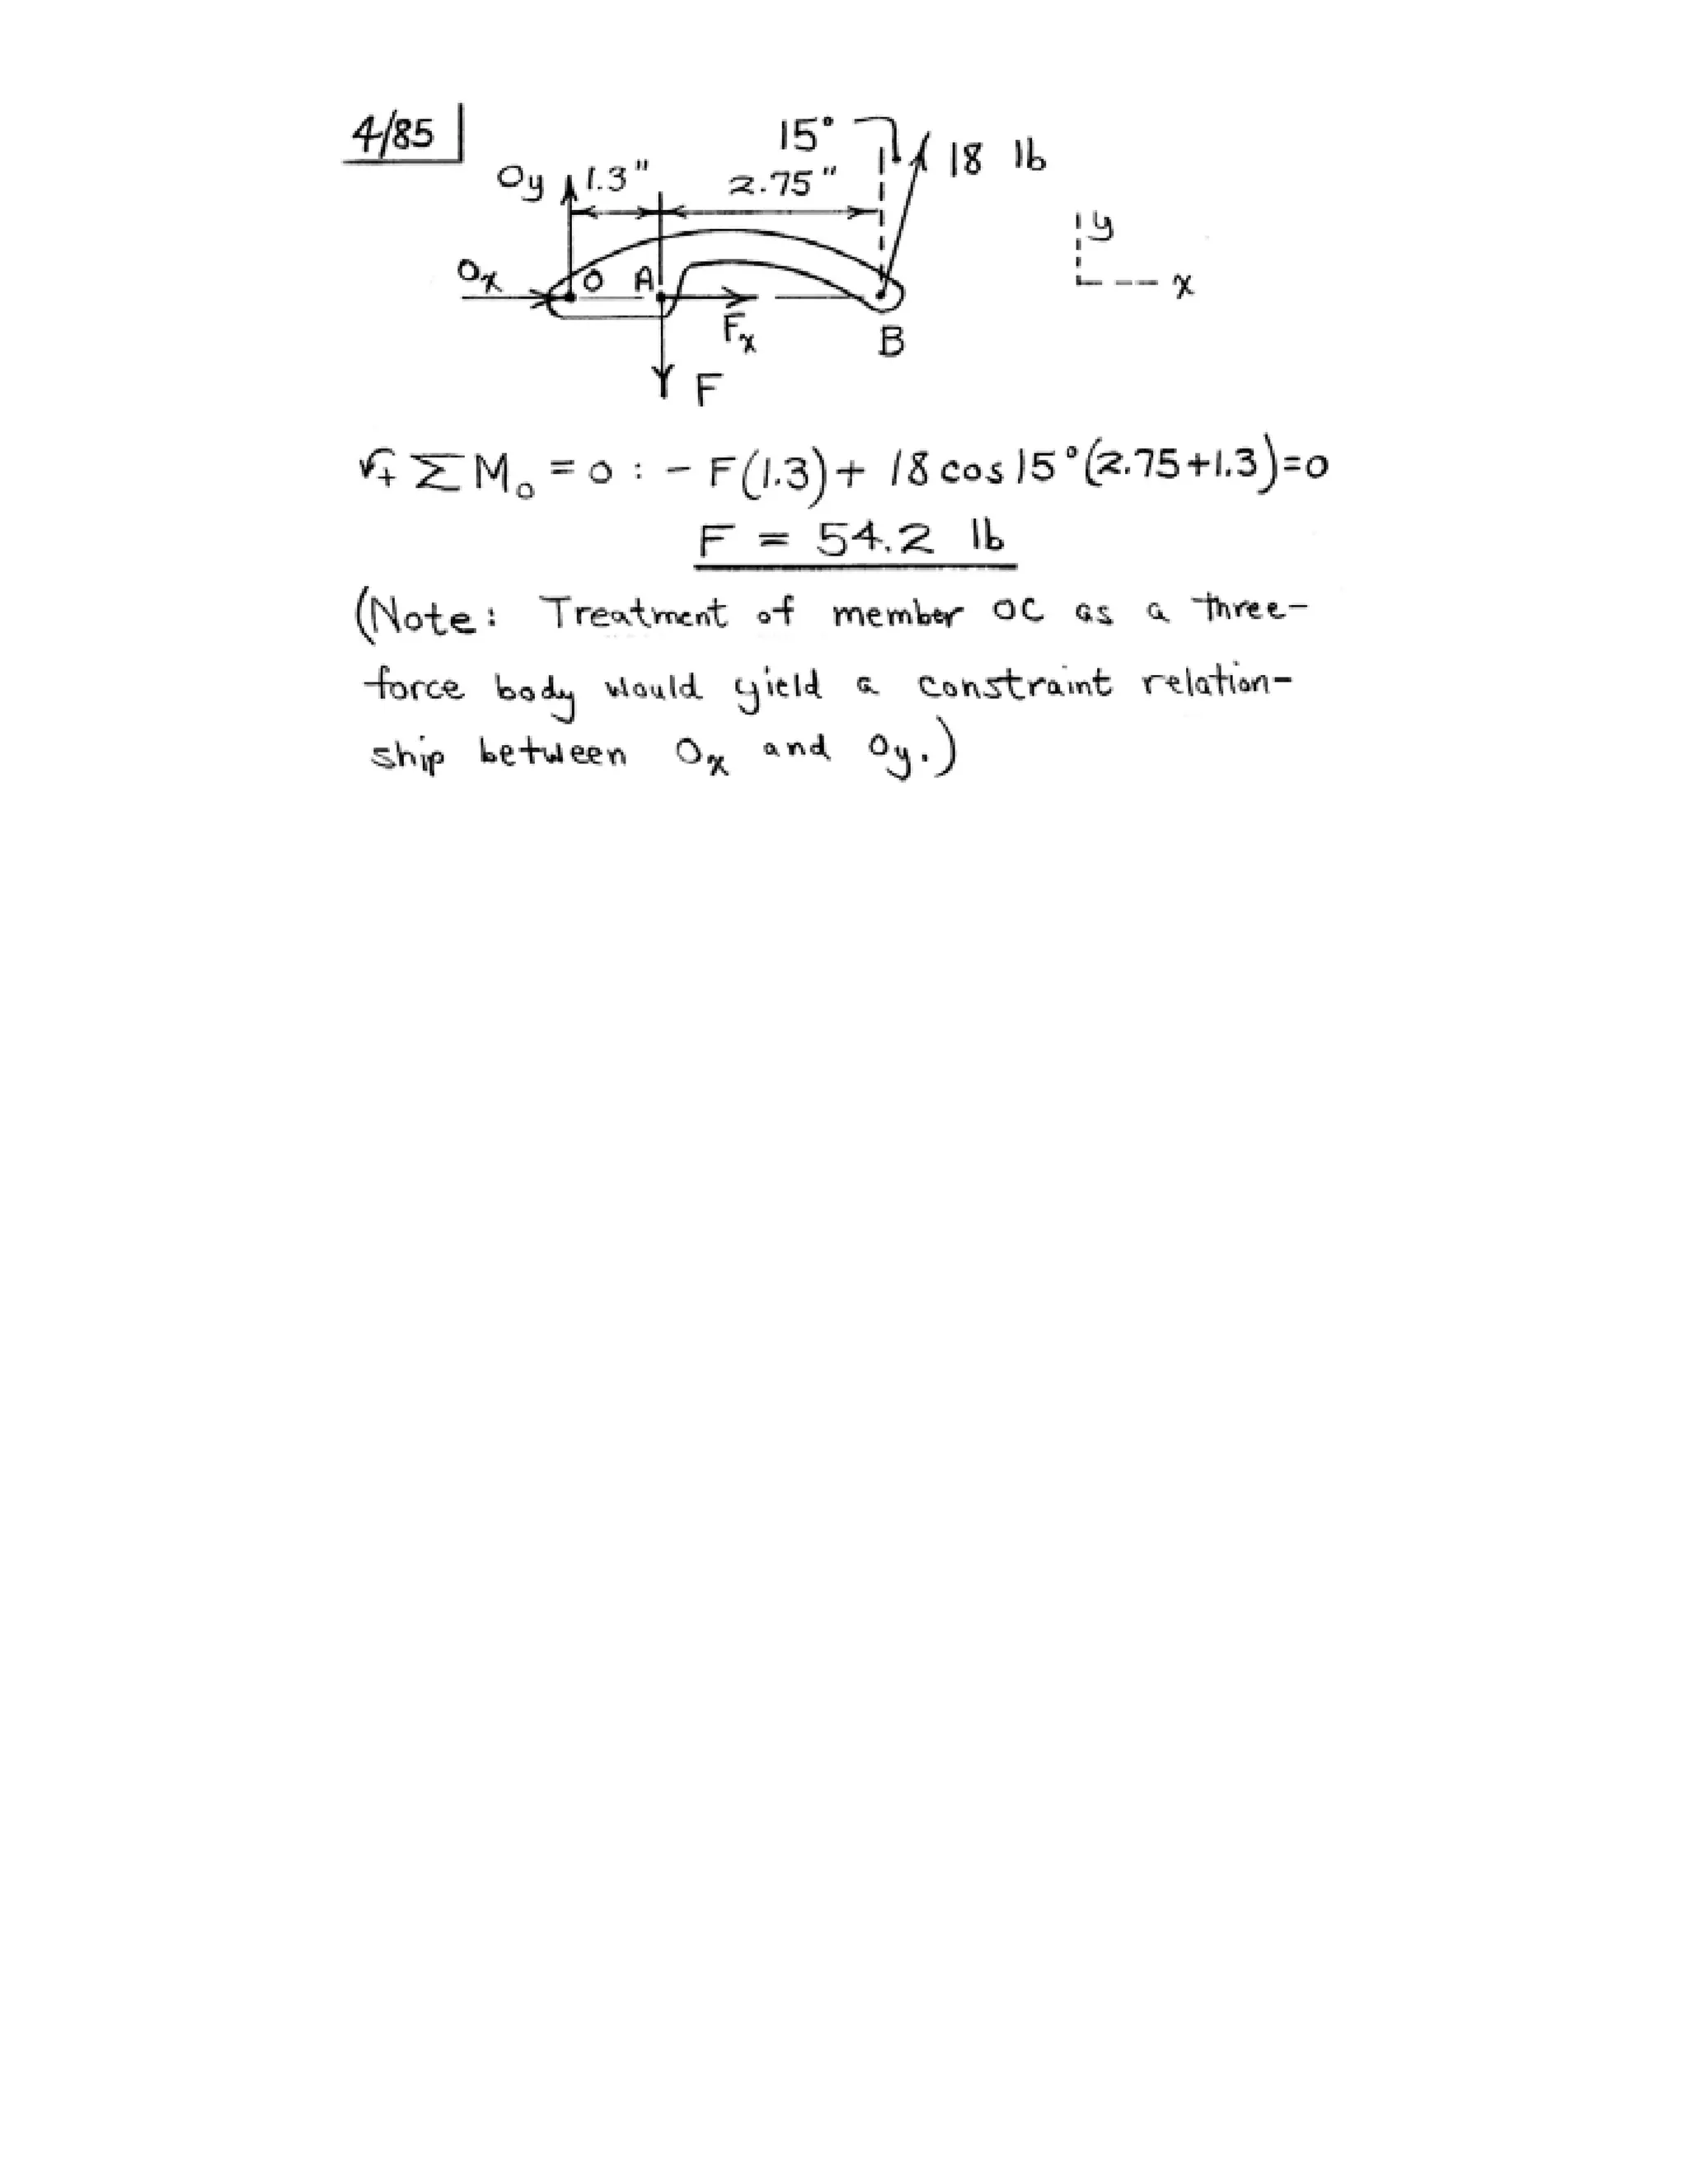 4/85
15°
18 lb
Oy 1.3" 2.75"
y
Ox O A x
Fx B
F
↶+ ΣMo = 0 : - F(1.3) + 18 cos 15°(2.75+1.3)=0
F = 54.2 lb
(Note: Treatment of member OC as a three-
force body would yield a constraint relation-
ship between Ox and Oy.)